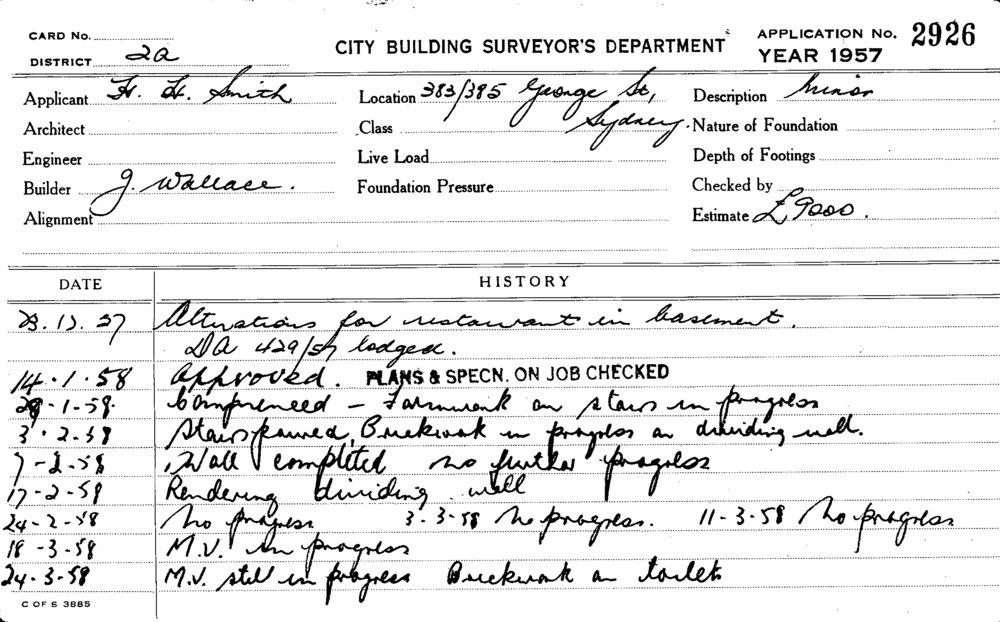 CARD No.
DISTRICT 2a
CITY BUILDING SURVEYOR'S DEPARTMENT
APPLICATION No. 2926
YEAR 1957
Applicant H. H. Smith
Location 383/385 George St,
Sydney.
Description Minor
Architect
Class
Nature of Foundation
Engineer
Live Load
Depth of Footings
Builder J. Wallace.
Foundation Pressure
Checked by
Alignment
Estimate £9000.
DATE HISTORY
Alterations for restaurant in basement.
DA 429/57 lodged.
14.1.58 Approved. PLANS & SPECN. ON JOB CHECKED
Commenced – Formwork on stairs in progress
3.2.58 Stairs poured, Brickwork in progress on dividing wall.
7-2-58 Wall completed no further progress
17-2-58 Rendering dividing wall
24-2-58 No progress 3-3-58 No progress. 11-3-58 No progress
18-3-58 M.V. in progress
24-3-58 M.V. still in progress Brickwork on toilets
C OF S 3885